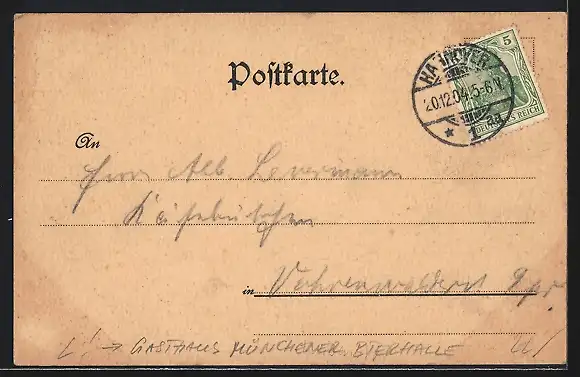 Postkarte.
5
HANNOVER
20.12.04.5-6 N.
* 1 *
DEUTSCHES REICH
An
Herrn Alb. Levermann
in Vahrenwalderst
L! → GASTHAUS MÜNCHENER BIERHALLE